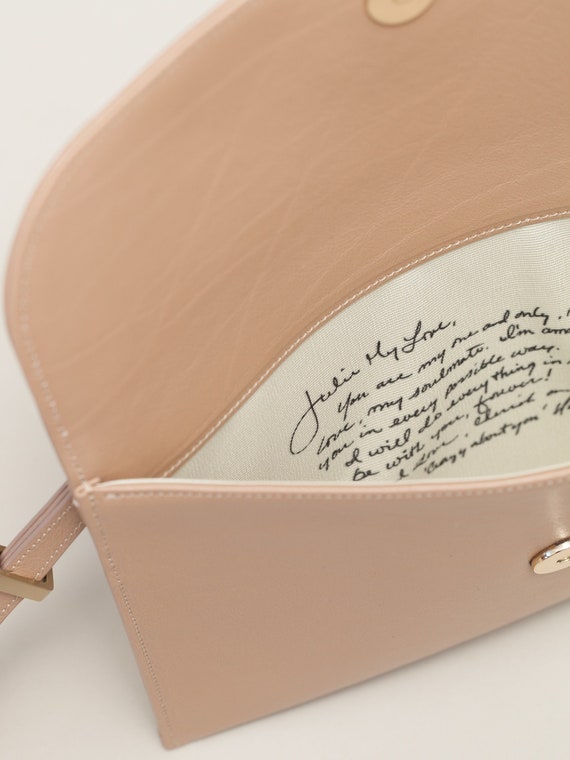 Julie My Love,
You are my one and only,
love, my soulmate. I'm
you in every possible way.
I will do everything in
be with you, forever!
"Crazy about you"